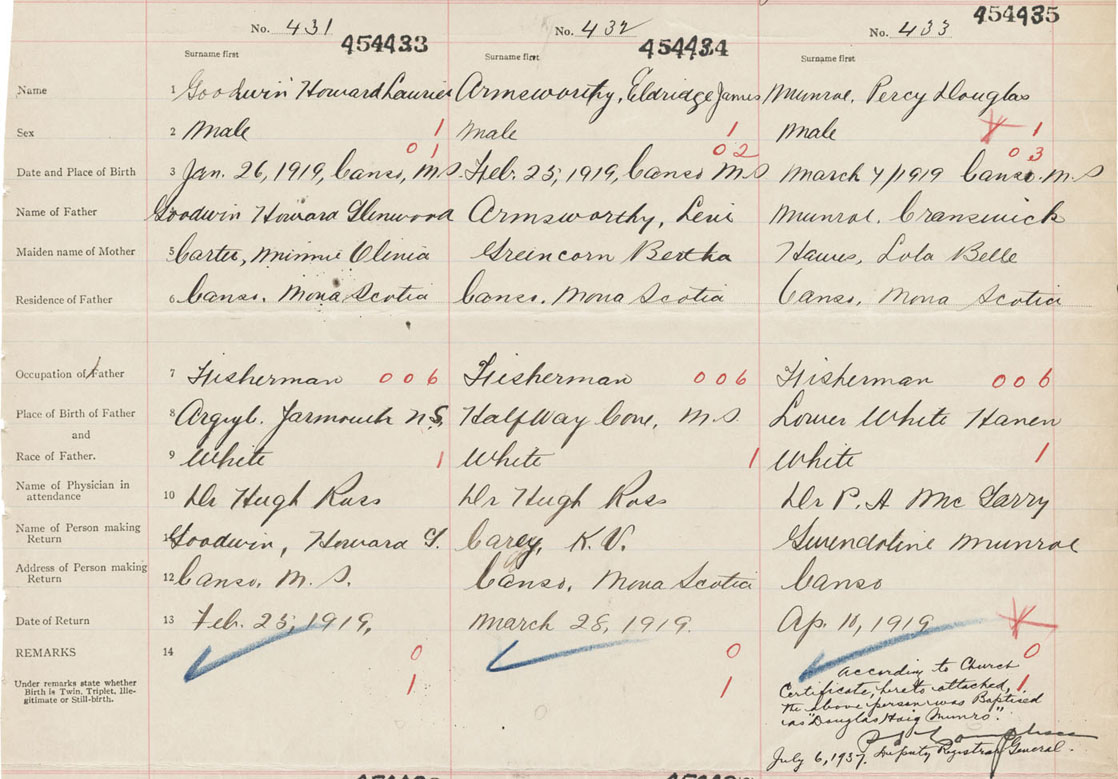 No. 431 No. 432 No. 433
454433 454434 454435
Surname first Surname first Surname first
Name 1 Goodwin Howard Laurier Armsworthy, Eldridge James Munroe, Percy Douglas
Sex 2 Male 1 Male 1 Male 1
01 02 03
Date and Place of Birth 3 Jan. 26, 1919, Canso, N.S. Feb. 25, 1919, Canso N.S. March 4/1919 Canso. N.S
Name of Father Goodwin Howard Glenwood Armsworthy, Levi Munroe. Cranswick
Maiden name of Mother 5 Carter, Minnie Olinia Greencorn Bertha Hawes, Lola Belle
Residence of Father 6 Canso. Nova Scotia Canso. Nova Scotia Canso. Nova Scotia
Occupation of Father 7 Fisherman 006 Fisherman 006 Fisherman 006
Place of Birth of Father 8 Argyle. Yarmouth N.S. Half Way Cove, N.S. Lower White Haven
and
Race of Father. 9 White 1 White 1 White 1
Name of Physician in attendance 10 Dr Hugh Ross Dr Hugh Ross Dr P. A McGarry
Name of Person making Return Goodwin, Howard G. Carey, K. V. Gwendoline Munroe
Address of Person making Return 12 Canso. N. S. Canso, Nova Scotia Canso
Date of Return 13 Feb. 25, 1919, March 28, 1919. Ap. 10, 1919
REMARKS 14 0 0 0
Under remarks state whether Birth is Twin, Triplet, Illegitimate or Still-birth. 1 1 1
According to Church
Certificate, hereto attached,
the above person was Baptised
as "Douglas Haig Munro".
Deputy Registrar General.
July 6, 1937.